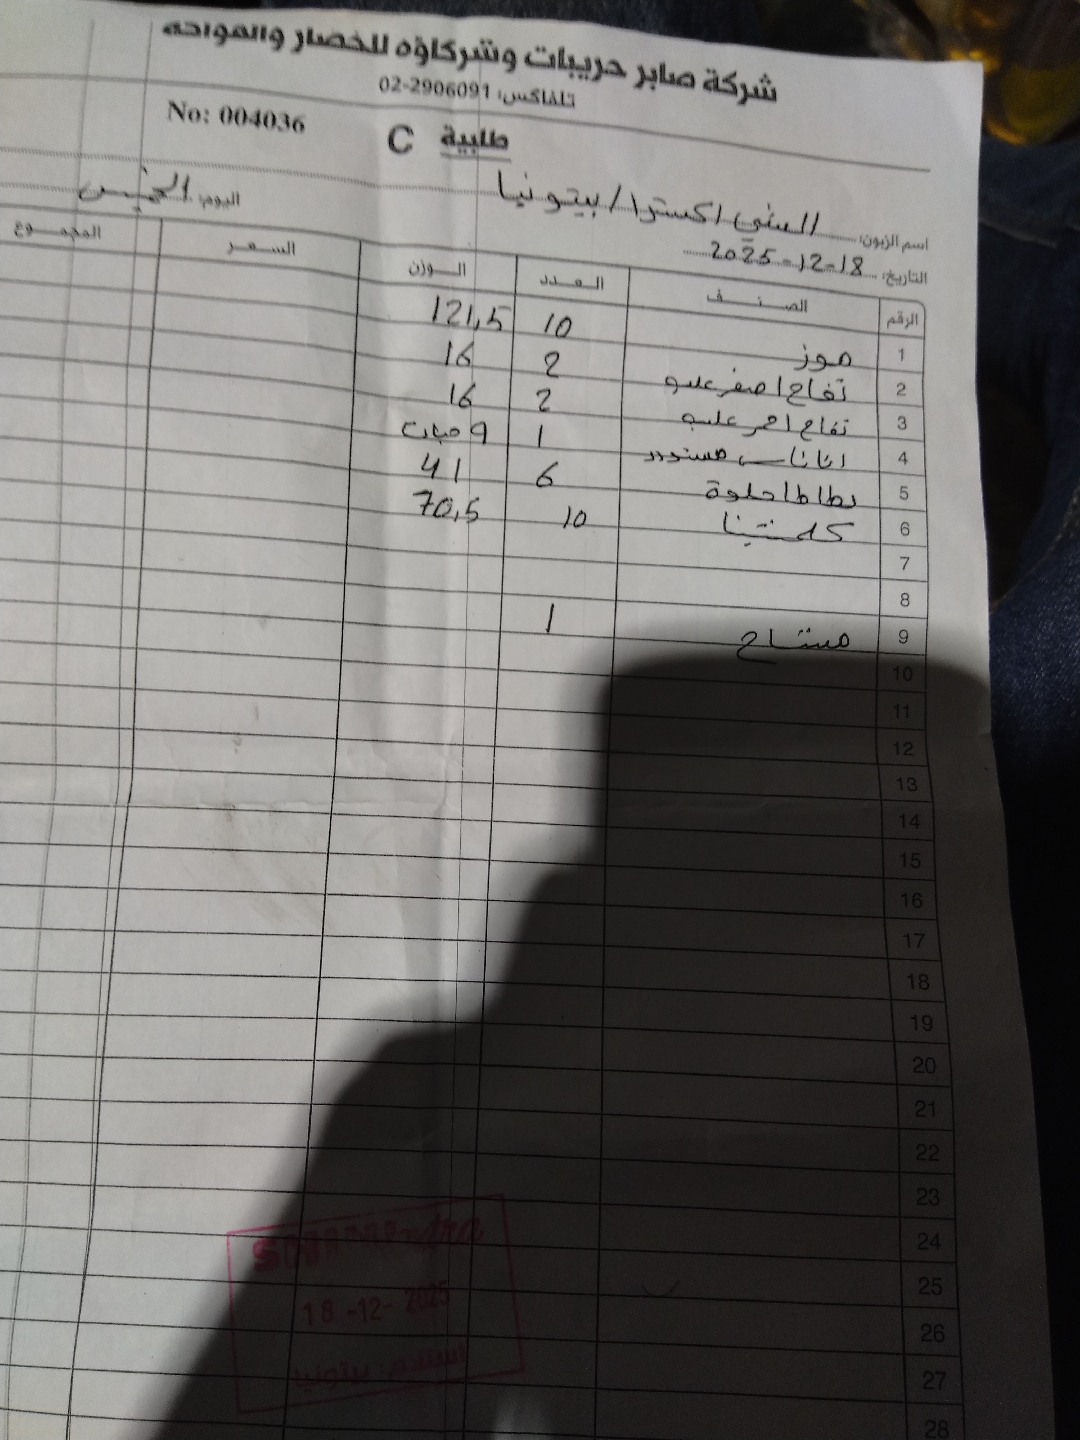 شركة صابر حريبات وشركاؤه للخضار والفواكه
تلفاكس: 02-2906091
No: 004036 طلبية C
اسم الزبون: السني اكسترا / بيتونيا اليوم: الخميس
التاريخ: 18-12-2025
الرقم الصنف العدد الوزن السعر المجموع
1 موز 10 121,5
2 تفاح اصفر علب 2 16
3 تفاح احمر علب 2 16
4 اناناس مستورد 1 9 حبات
5 بطاطا حلوة 6 41
6 كلمنتينا 10 70,5
7
8
9 مشتاح 1
10
11
12
13
14
15
16
17
18
19
20
21
22
23
24
25
26
27
28
18-12-2025
استلام: بيتونيا